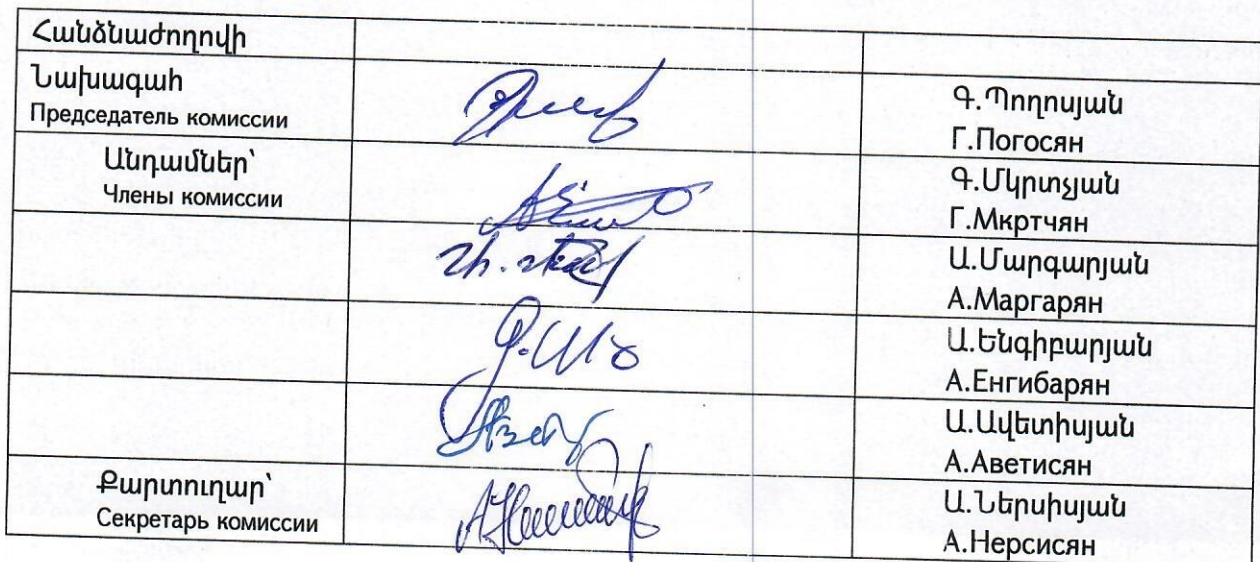 Հանձնաժողովի
Նախագահ
Председатель комиссии
Գ.Պողոսյան
Г.Погосян
Անդամներ՝
Члены комиссии
Գ.Մկրտչյան
Г.Мкртчян
Ա.Մարգարյան
А.Маргарян
Ա.Ենգիբարյան
А.Енгибарян
Ա.Ավետիսյան
А.Аветисян
Քարտուղար՝
Секретарь комиссии
Ա.Ներսիսյան
А.Нерсисян